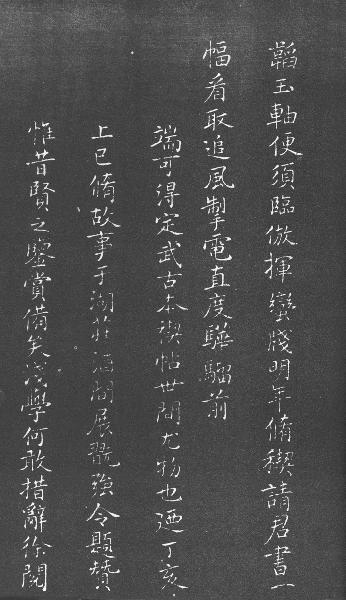 韜玉軸便須臨倣揮蠻牋明年脩禊請君書一
幅看取追風掣電直度驊騮前
端可得定武古本禊帖世間尤物也迺丁亥
上巳脩故事于湖莊酒間展翫強令題贊
惟昔賢之鑒賞備矣淺學何敢措辭徐閱